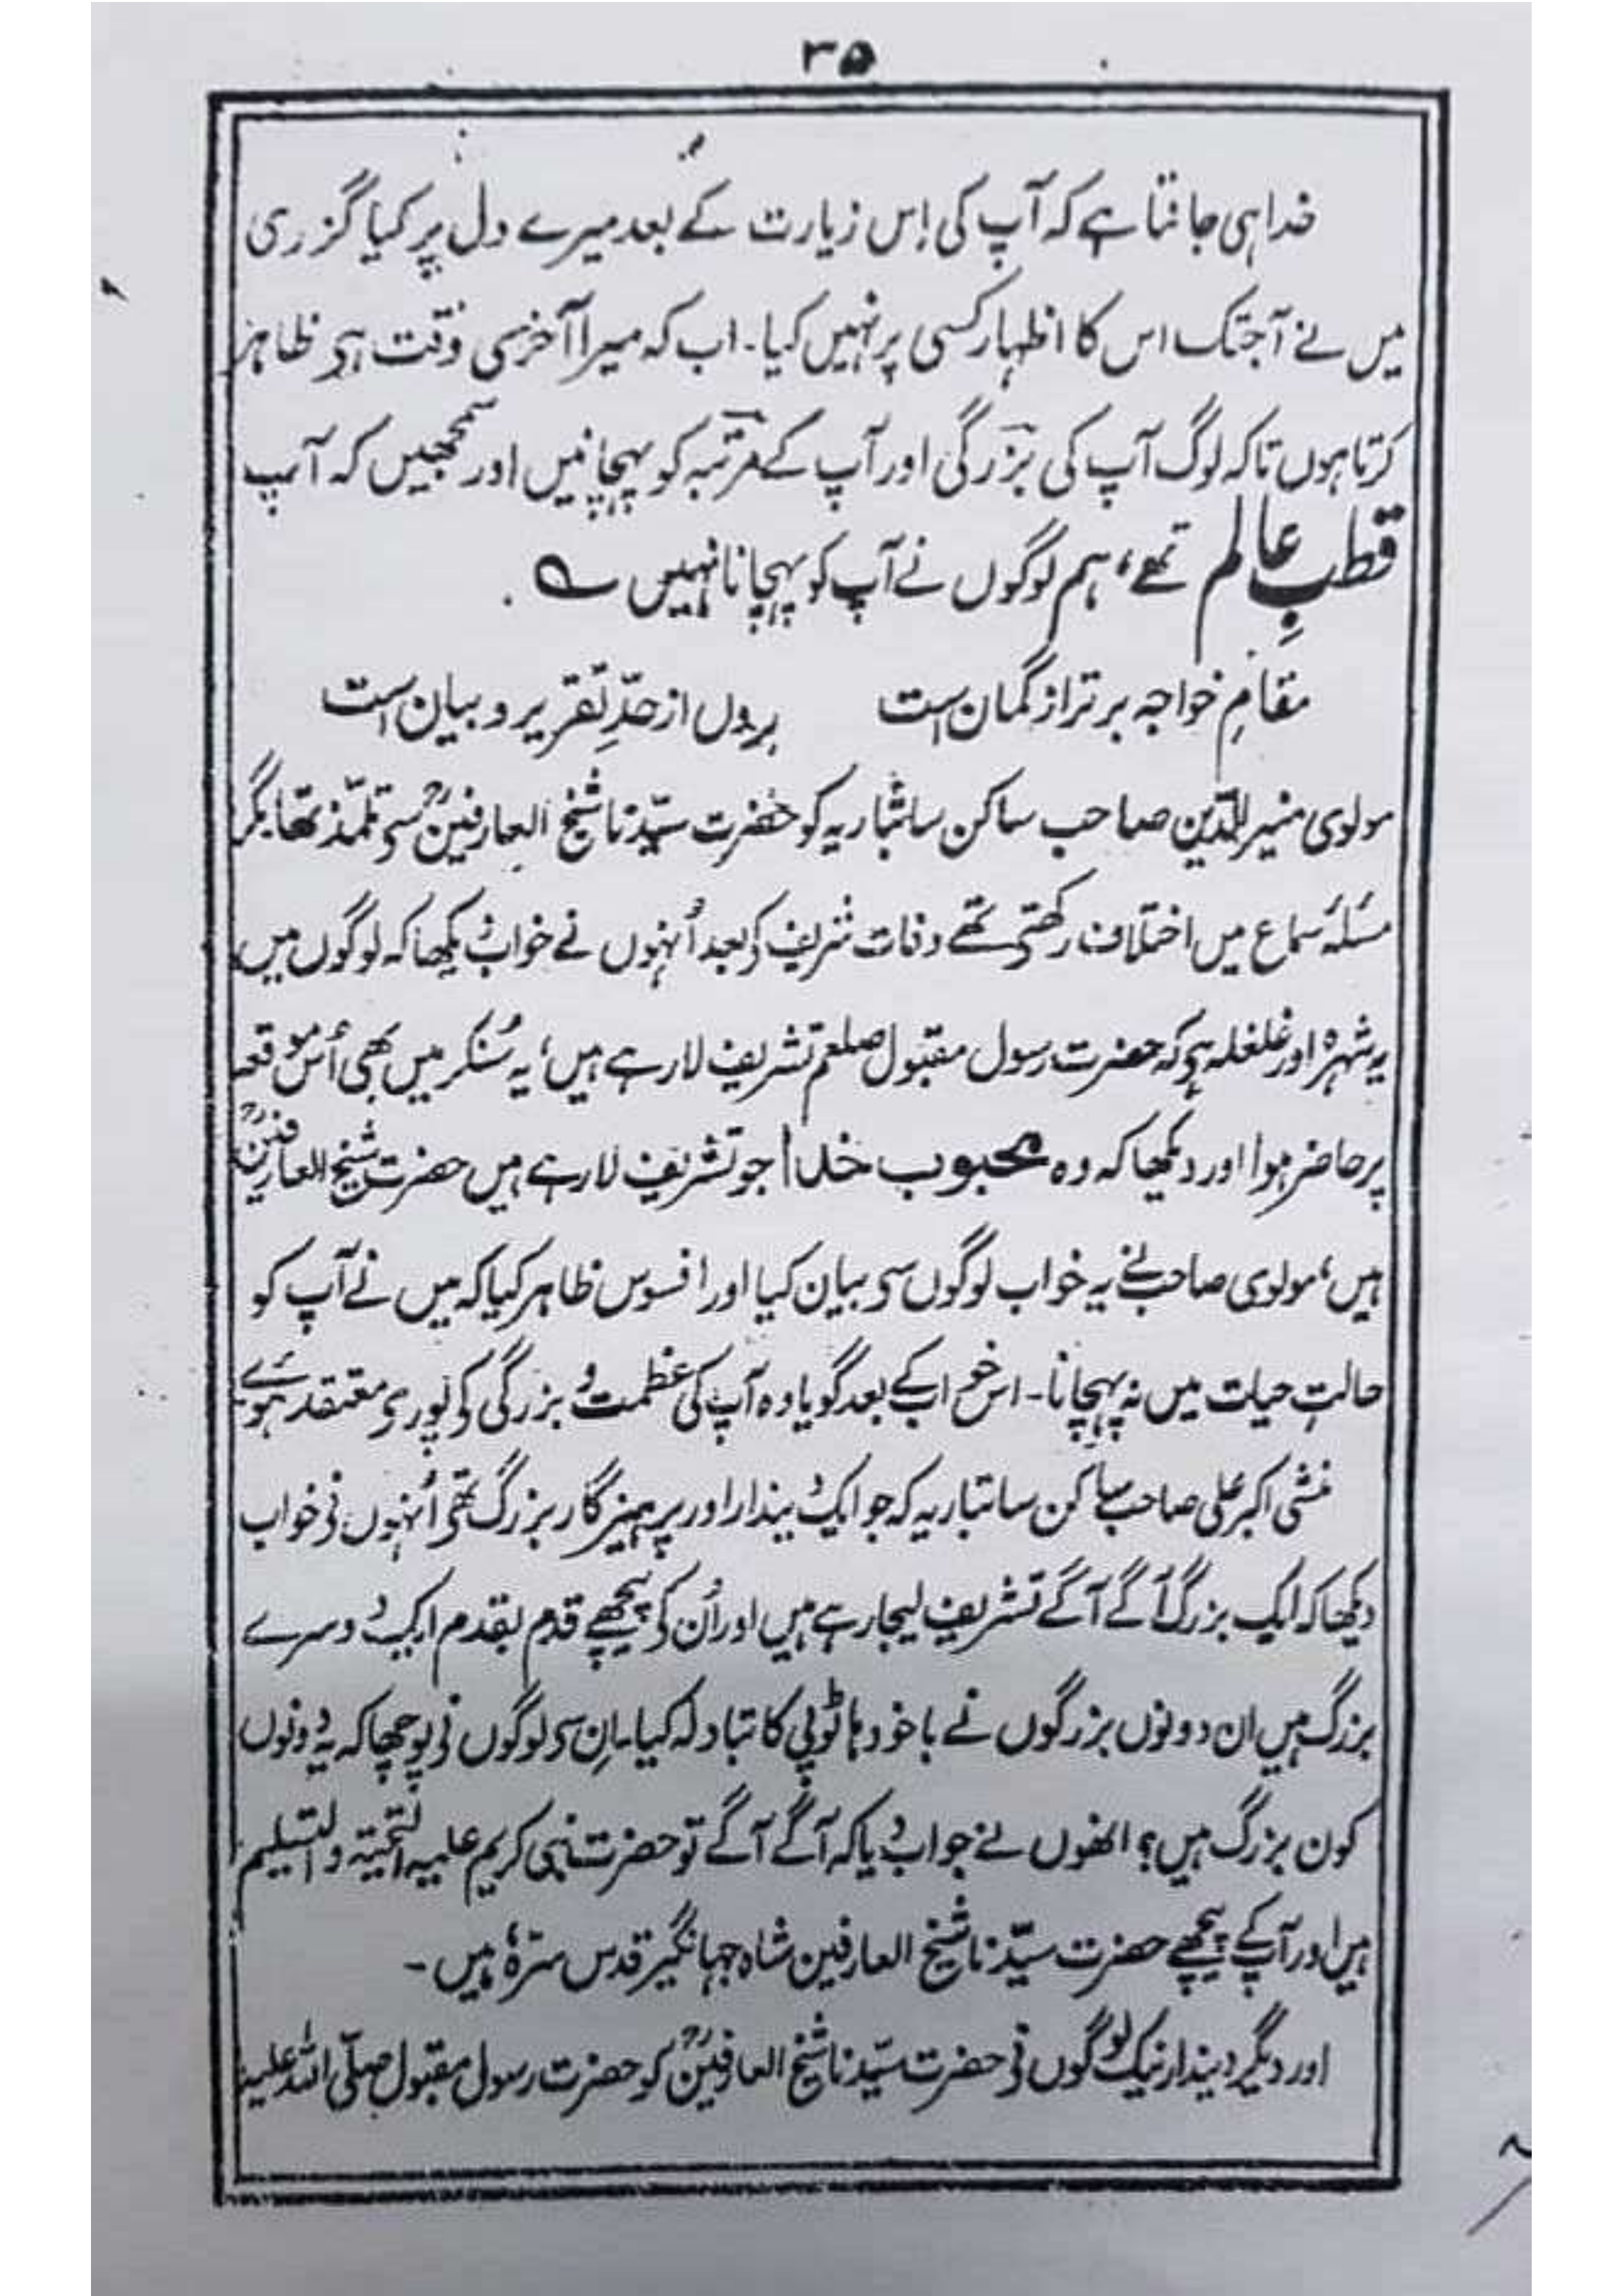 ۳۵
خدا ہی جانتا ہے کہ آپ کی اِس زیارت کے بعد میرے دل پر کیا گزری
میں نے آجتک اس کا اظہار کسی پر نہیں کیا۔ اب کہ میرا آخری وقت ہی ظاہر
کرتا ہوں تاکہ لوگ آپ کی بزرگی اور آپ کے مرتبہ کو پہچانیں اور سمجھیں کہ آپ
قطبِ عالم تھے، ہم لوگوں نے آپ کو پہچانا نہیں ؎
مقامِ خواجہ برتر از گمان است بروں از حدِّ تقریر و بیان است
مولوی منیر الدّین صاحب ساکن ساتباریہ کو حضرت سیّدنا شیخ العارفینؒ سی تلمّذ تھا مگر
مسئلہ سماع میں اختلاف رکھتی تھے وفات شریف کی بعد اُنہوں نے خواب دیکھا کہ لوگوں میں
یہ شہرہ اور غلغلہ ہی کہ حضرت رسول مقبول صلعم تشریف لارہے ہیں، یہ سُنکر میں بھی اُس موقعہ
پر حاضر ہوا اور دیکھا کہ وہ محبوب خدا جو تشریف لارہے ہیں حضرت شیخ العارفینؒ
ہیں، مولوی صاحب نے یہ خواب لوگوں سی بیان کیا اور افسوس ظاہر کیا کہ میں نے آپ کو
حالتِ حیات میں نہ پہچانا۔ اس خواب کے بعد گویا وہ آپ کی عظمت و بزرگی کی پوری معتقد ہوئے
منشی اکبر علی صاحب ساکن ساتباریہ کہ جو ایک دیندار اور پرہیزگار بزرگ تھی اُنہوں نی خواب
دیکھا کہ ایک بزرگ آگے آگے تشریف لیجارہے ہیں اور اُن کی پیچھے قدم بقدم ایک دوسرے
بزرگ ہیں ان دونوں بزرگوں نے باخودہا ٹوپی کا تبادلہ کیا۔ اِن سی لوگوں نی پوچھا کہ یہ دونوں
کون بزرگ ہیں؟ انھوں نے جواب دیا کہ آگے آگے تو حضرت نبی کریم علیہ التحیّۃ والتسلیم
ہیں اور آپکے پیچھے حضرت سیّدنا شیخ العارفین شاہ جہانگیر قدس سرّہٗ ہیں ۔
اور دیگر دیندار نیک لوگوں نی حضرت سیّدنا شیخ العارفینؒ کو حضرت رسول مقبول صلّی اللہ علیہ